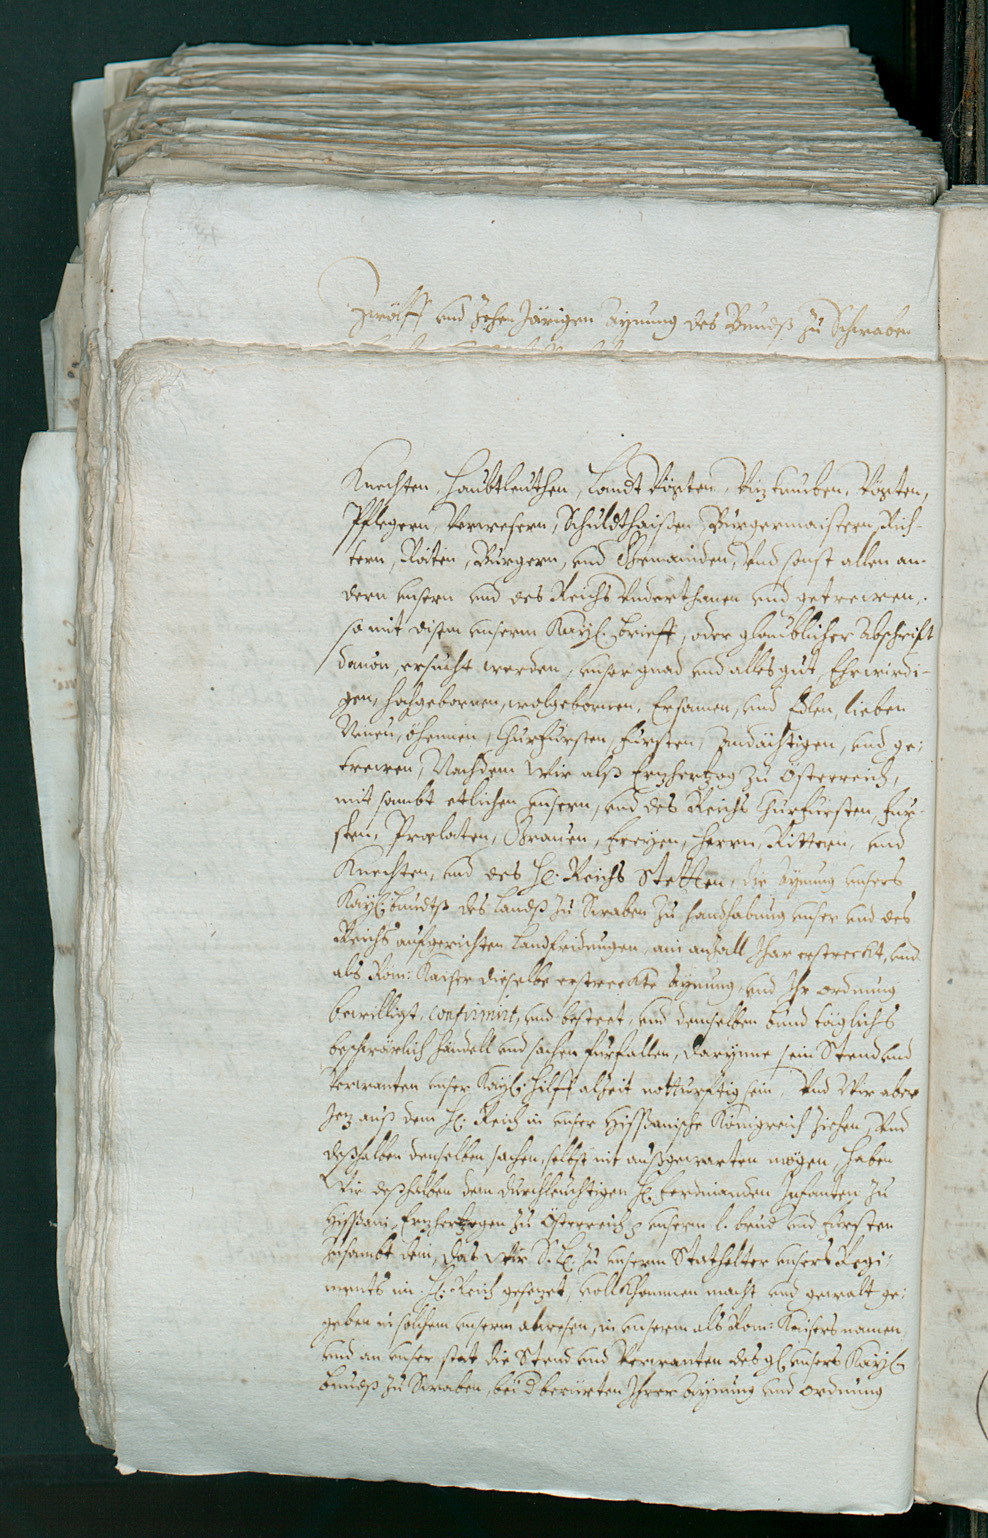 Zwölff und Zehen Järigen Aynung des Bundß zu Schwaben
Knechten, Haubtleuthen, Landt Vögten, Viztumben, Vögten,
Pflegern, Verwesern, Schuldthaißen, Burgermaistern, Rich-
tern, Räten, Burgern, und Gemainden, Und sonst allen an-
dern unsern und des Reichs Underthanen und getrewen,
so mit disem unserm Kayl: Brieff, oder glaublicher Abschrift
davon, ersucht werden, unser gnad und alles gut, Ehrwirdi-
gen, Hochgebornen, wolgebornen, Ersamen, und Edlen, lieben
Neven, Öhemen, Churfürsten, Fürsten, Andächtigen, und ge-
trewen, Nachdem Wir alß Erzhertzog zu Österreich,
mit sambt etlichen unsern, und des Reichs Churfursten, Fur-
sten, Praelaten, Graven, Freyen, Herrn, Rittern, und
Knechten, und des Hl: Reichs Stetten, die Aynung unsers
Kayl: Bundtß des Landß zu Swaben zu handhabung unser und des
Reichs aufgerichten Landfridungen, ain anzall Jhar erstreckt, und
als Rom: Kaiser dieselbe erstreckte Aynung, und Ihr ordnung
bewilligt, confirmirt, und besteet, und demselben Bund täglichs
beschwärlich händell und sachen fürfallen, darynne sein Stend und
Verwanten unser Kayl: Hilff alzeit notturftig sein, Und Wir aber
Jez auß dem Hl: Reich in unser Hispanische Königreich ziehen, Und
deßhalben denselben sachen, selbst nit außgewarten mögen, Haben
Wir deßhalben dem Durchleuchtigen H: Ferdinanden Infanten zu
Hispani, Erzhertzogen zu Österreich unserm l. brud und Fursten
Zusambt dem, das Wir S. L. zu unserm Stathalter unsers Regi-
ments im Hl: Reich gesetzet, vollkhommen macht und gewalt ge-
geben in solchem unserm abwesen, in unserm als Rom: Kaisers namen
und an unser stat die Stend und Verwanten des gl: unsers Kayl:
Bundß zu Swaben, bei d berürten Ihrer Aynung und Ordnung